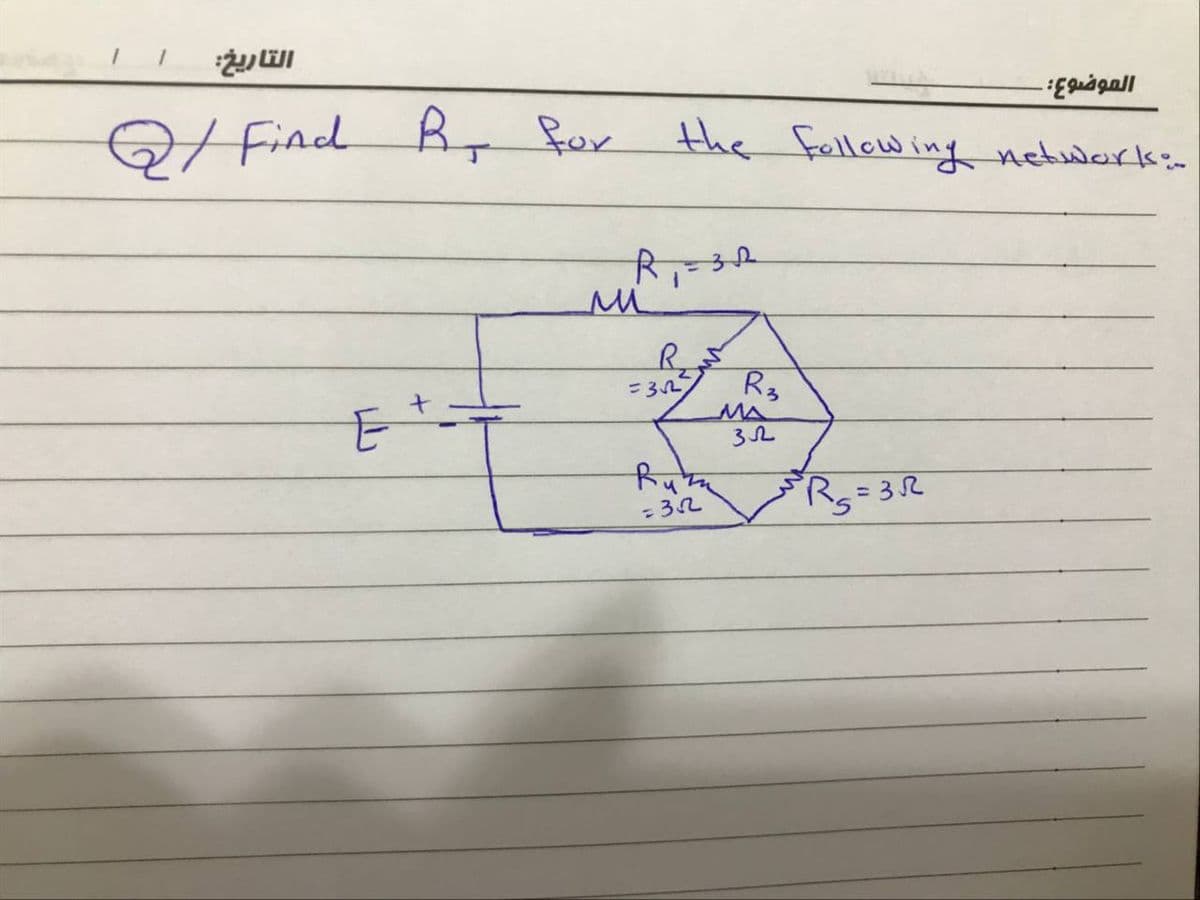 التاريخ: / /
الموضوع:
Q/ Find R_T for the following network:-
R₁ = 3Ω
R₂
= 3Ω
R₃
3Ω
E + -
R₄
= 3Ω
R₅ = 3Ω